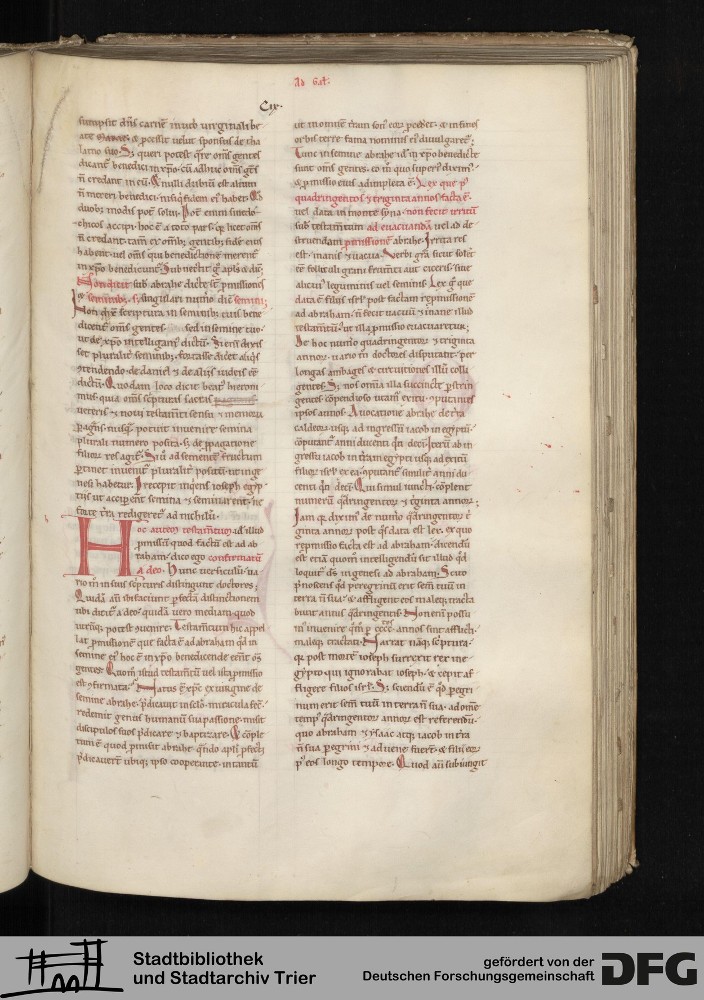 Ad Gal.
Cix.
sumpsit dn̄s carnē in utero uirginali be
ate Marie. & processit uelut sponsus de tha
lamo suo. S; queri potest q̄re om̄s gentes
dicant̄ benedici in xp̄o. cū adhuc om̄s gēs
n̄ credant in eū. & nulli dubiū est aliquē
n̄ mereri benedici. nisi q̄ fidem ei habet.
duob; modis pot̄ solui. Pot̄ enim sinecdo
chicos accipi. hoc ē a toto pars. q̄ licet om̄s
n̄ credant. tam̄ ex om̄ib; gentib; fidē eius
habent. uel om̄s qui benedictionē merent̄
in xp̄o benedicunt̄. Subnectit q̄ apl̄s &
Non dicit sub abrahe dicte st̄ p̄missiones
seminib;. singulari num̄o dic̄ semini;
Non dix̄ scriptura in seminib; tuis bene
dicent̄ om̄s gentes sed in semine tuo.
ut de xp̄o intelligam̄ dictū. Si eni dixis
set pluralit̄ seminib;. fortasse dicet aliq̄s
9tendendo. de daniel & de aliis uideri eē
dictū. Quodam loco dicit beat̄ hieroni
mus. quia om̄s sc̄pturas sanctas
ueteris & noui testam̄ti sensu & memoria
p̄agr̄ns. nusq̄ potuit inuenire semina
plurali numero posita. s; de p̄pagatione
filior̄ res agit̄. Siū ad sementē fructum
p̄tinet inuenit̄ pluralit̄ positū. ut in ge
nesi habetur. Precepit inq̄ens ioseph egyp
tiis ut acciperent semina & seminarent. ne
forte t̄ra redigeret̄ ad nichilū.
Hoc autem testam̄tum. ad illud
p̄missū quod factū est ad ab
raham. dico ego confirmatū
a deo. Hunc uersiculū ua
rio m̄ in suis sc̄pturis distingunt doctores;
Quidā aū subiciunt p̄fectā distinctionem
ubi dicit̄ a deo. quidā uero mediam. quod
utrūq; potest 9uenire. Testam̄tum hic appel
lat p̄missionē que facta ē ad abraham q̄d in
semine ei hoc ē in xp̄o benedicende ern̄t om̄s
gentes. Quom̄ istud testam̄tū uel ista p̄missio
est 9firmata. Natus ē xp̄c ex uirgine de
semine abrahe. p̄dicauit in sc̄lo. miracula fec̄.
redemit genus humanū sua passione. misit
discipulos suos p̄dicare & baptizare. & cōple
tum ē quod p̄misit abrahe. q̄ndo apl̄i p̄fecti
p̄dicauer̄t ubiq; ip̄so cooperante. in tantū
ut in omnē t̄ram son̄ eor̄ pcedet. & in fines
orbis terre fama nominis ei diuulgaret̄;
Tunc in semine abrahe id in xp̄o benedicte
sunt om̄s gentes. eo m̄ quo superi diximi.
& p̄missio eius adimpleta ē. Lex que p̄
quadringentos & triginta annos facta ē.
uel data in monte syna. non fecit irritū
sub testam̄tum ad euacuandā uel ad de
struendam p̄missionē abrahe. Irrita res
est. inanis & uacua. Verbi gr̄a sicut solet
eē folliculi grani frum̄ti aut ciceris. siue
alicui leguminis uel seminis. Lex q̄ que
data ē filiis isrl̄ post factam rep̄missionē
ad abraham. n̄ fecit uacuū & inane illud
testam̄tū. ut illa p̄missio euacuaretur;
De hoc num̄o quadringentor̄ & triginta
annor̄. uario m̄ doctores disputant. per
longas ambages & circuitiones illū colli
gentes. S; nos om̄ia illa succincte p̄strin
gentes. cōpendioso utam̄ exitu. 9putantes
ipsos annos. A uocatione abrahe de t̄ra
caldeor̄. usq; ad ingressū iacob in egyptū.
cōputant̄ anni ducenti q̄n deci. Iterū ab in
gressu iacob in t̄ram egypti usq; ad exitū
filior̄ isrl̄ ex ea. 9putant̄ similit̄ anni du
centi q̄n decē. Qui simul iuncti. cōplent
numerū q̄dringentor̄ & t̄ginta annor̄;
Iam q̄ diximi de num̄o q̄dringentor̄ &
ginta annor̄ post q̄s data est lex. ex quo
rep̄missio facta est ad abraham. dicendū
est etiā quom̄ intelligendū sit illud q̄d
loquit̄ dn̄s in genesi ad abraham. Scito
p̄noscens q̄d peregrinū erit sem̄ tuū in
terra n̄ sua. & affligent eos maleq; tracta
bunt annis q̄dringentis. Non enī possu
m̄ inuenire q̄m p̄ cccctos annos sint afflicti.
maleq; tractati. Narrat naq; sc̄ptura.
q̄ post mortē ioseph surrexit rex in e
gypto qui ignorabat ioseph. & cepit af
fligere filios isrl̄. S; sciendū ē q̄d p̄egri
num erit sem̄ tuū in terra n̄ sua. ad om̄e
temp̄ q̄dringentor̄ annor̄ est referendū.
quo abraham & ysaac atq; iacob in t̄ra
n̄ sua p̄egrini & aduene fuerē. & filii eor̄
p̄ eos longo tempore. Quod aū subiungit
Stadtbibliothek
und Stadtarchiv Trier
gefördert von der
Deutschen Forschungsgemeinschaft
DFG